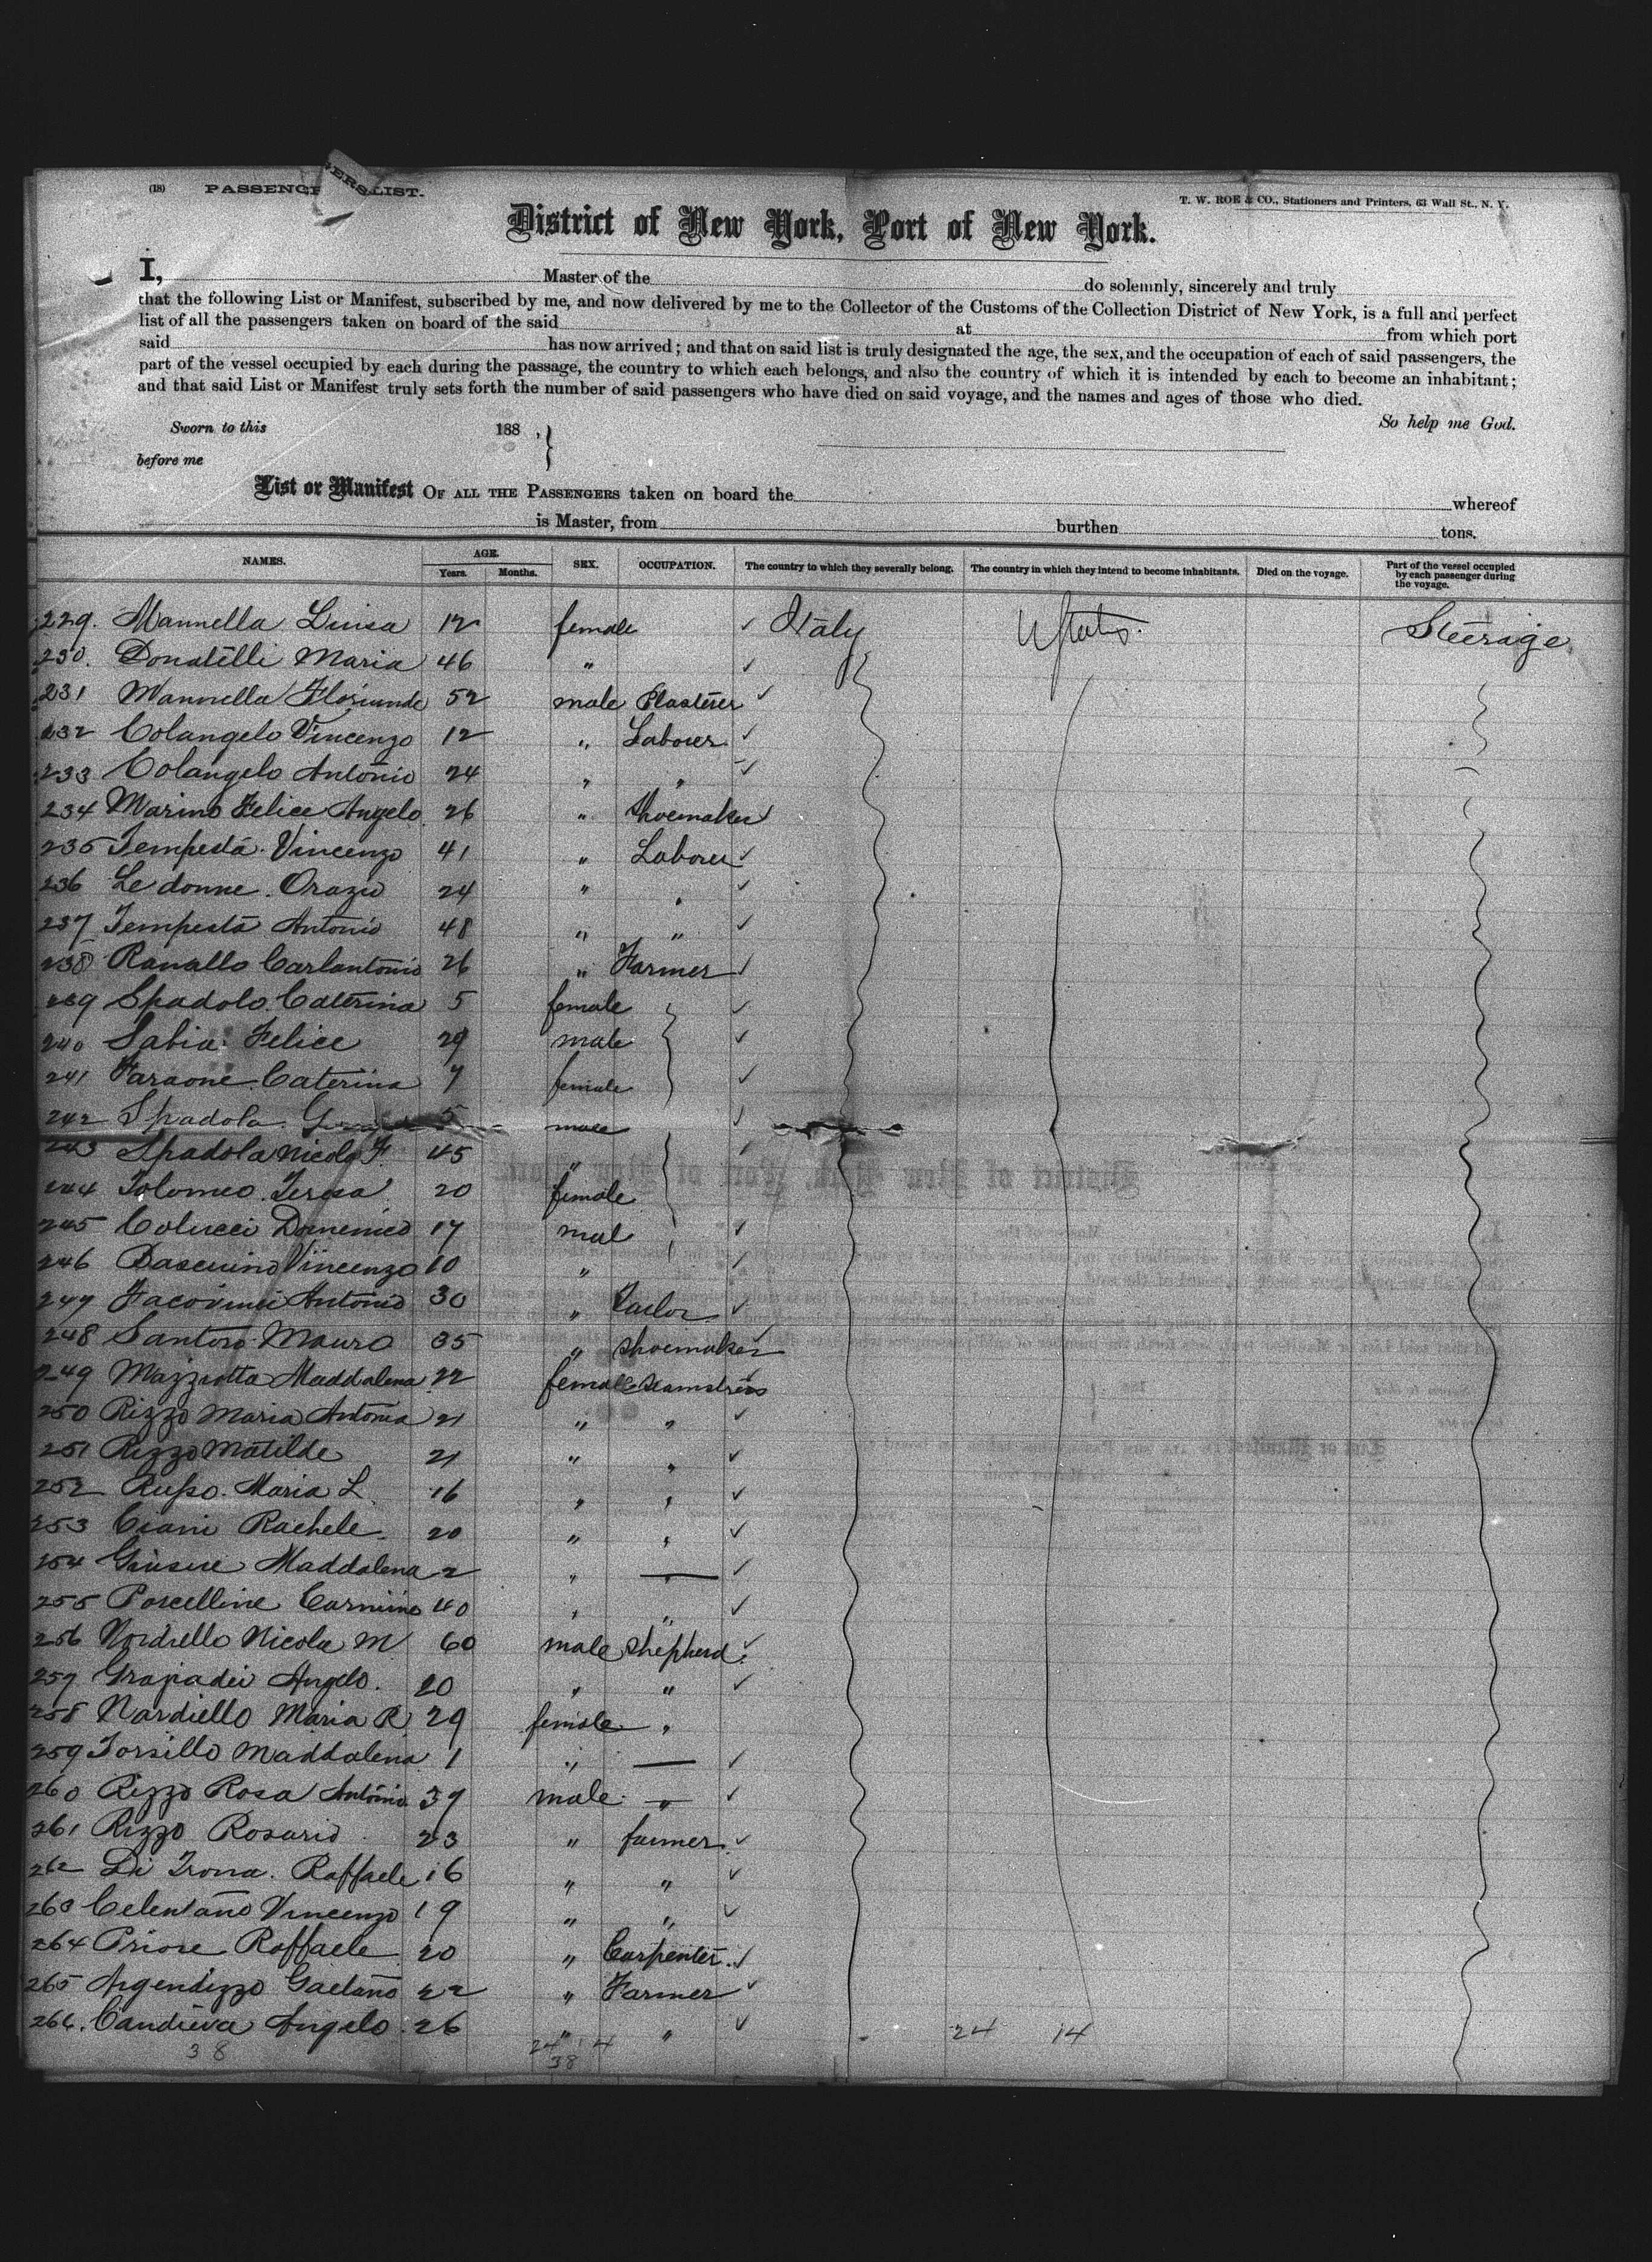 (18) PASSENGERS LIST.
T. W. ROE & CO., Stationers and Printers, 63 Wall St., N. Y.
District of New York, Port of New York.
I, Master of the do solemnly, sincerely and truly
that the following List or Manifest, subscribed by me, and now delivered by me to the Collector of the Customs of the Collection District of New York, is a full and perfect
list of all the passengers taken on board of the said at from which port
said has now arrived; and that on said list is truly designated the age, the sex, and the occupation of each of said passengers, the
part of the vessel occupied by each during the passage, the country to which each belongs, and also the country of which it is intended by each to become an inhabitant;
and that said List or Manifest truly sets forth the number of said passengers who have died on said voyage, and the names and ages of those who died.
So help me God.
Sworn to this 188 ,
before me
List or Manifest OF ALL THE PASSENGERS taken on board the whereof
is Master, from burthen tons.
NAMES. AGE. Years. Months. SEX. OCCUPATION. The country to which they severally belong. The country in which they intend to become inhabitants. Died on the voyage. Part of the vessel occupied by each passenger during the voyage.
229. Mannella Luisa 12 female ✓ Italy Ustates. Steerage
230. Donatelli Maria 46 " ✓
231 Mannella Floriundo 52 male Plasterer ✓
232 Colangelo Vincenzo 12 " Laborer ✓
233 Colangelo Antonio 24 " " ✓
234 Marino Felice Angelo 26 " Shoemaker ✓
235 Tempesta Vincenzo 41 " Laborer ✓
236 Le donne Orazio 24 " " ✓
237 Tempesta Antonio 48 " " ✓
238 Ranallo Carlantonio 26 " Farmer ✓
239 Spadolo Caterina 5 female ✓
240 Sabia Felice 29 male ✓
241 Faraone Caterina 7 female ✓
242 Spadola 5 male ✓
243 Spadola Nicola F. 45 " ✓
244 Tolomeo Teresa 20 female
245 Colucci Domenico 17 mal ✓
246 Vincenzo 10 " ✓
247 Antonio 30 " Tailor ✓
248 Santoro Mauro 35 " shoemaker ✓
249 Mazziotta Maddalena 22 female Seamstress
250 Rizzo Maria Antonia 21 " " ✓
251 Rizzo Matilde 21 " " ✓
252 Russo Maria L. 16 " " ✓
253 Ciani Rachele 20 " " ✓
254 Maddalena 2 " — ✓
255 Porcelline Carmine 40 " " ✓
256 Nordiello Nicola M 60 male Shepherd ✓
257 Grapadei Angelo. 20 " " ✓
258 Nardiello Maria R 29 female "
259 Torsillo Maddalena 1 " — ✓
260 Rizzo Rosa Antonia 37 male — ✓
261 Rizzo Rosario 23 " farmer ✓
262 Di Trona. Raffaele 16 " " ✓
263 Celentano Vincenzo 19 " " ✓
264 Priore Raffaele 20 " Carpenter ✓
265 Argendizzo Gaetano 22 " Farmer ✓
266. Candieva Angelo 26 " " ✓
24 14
38 24 14
38